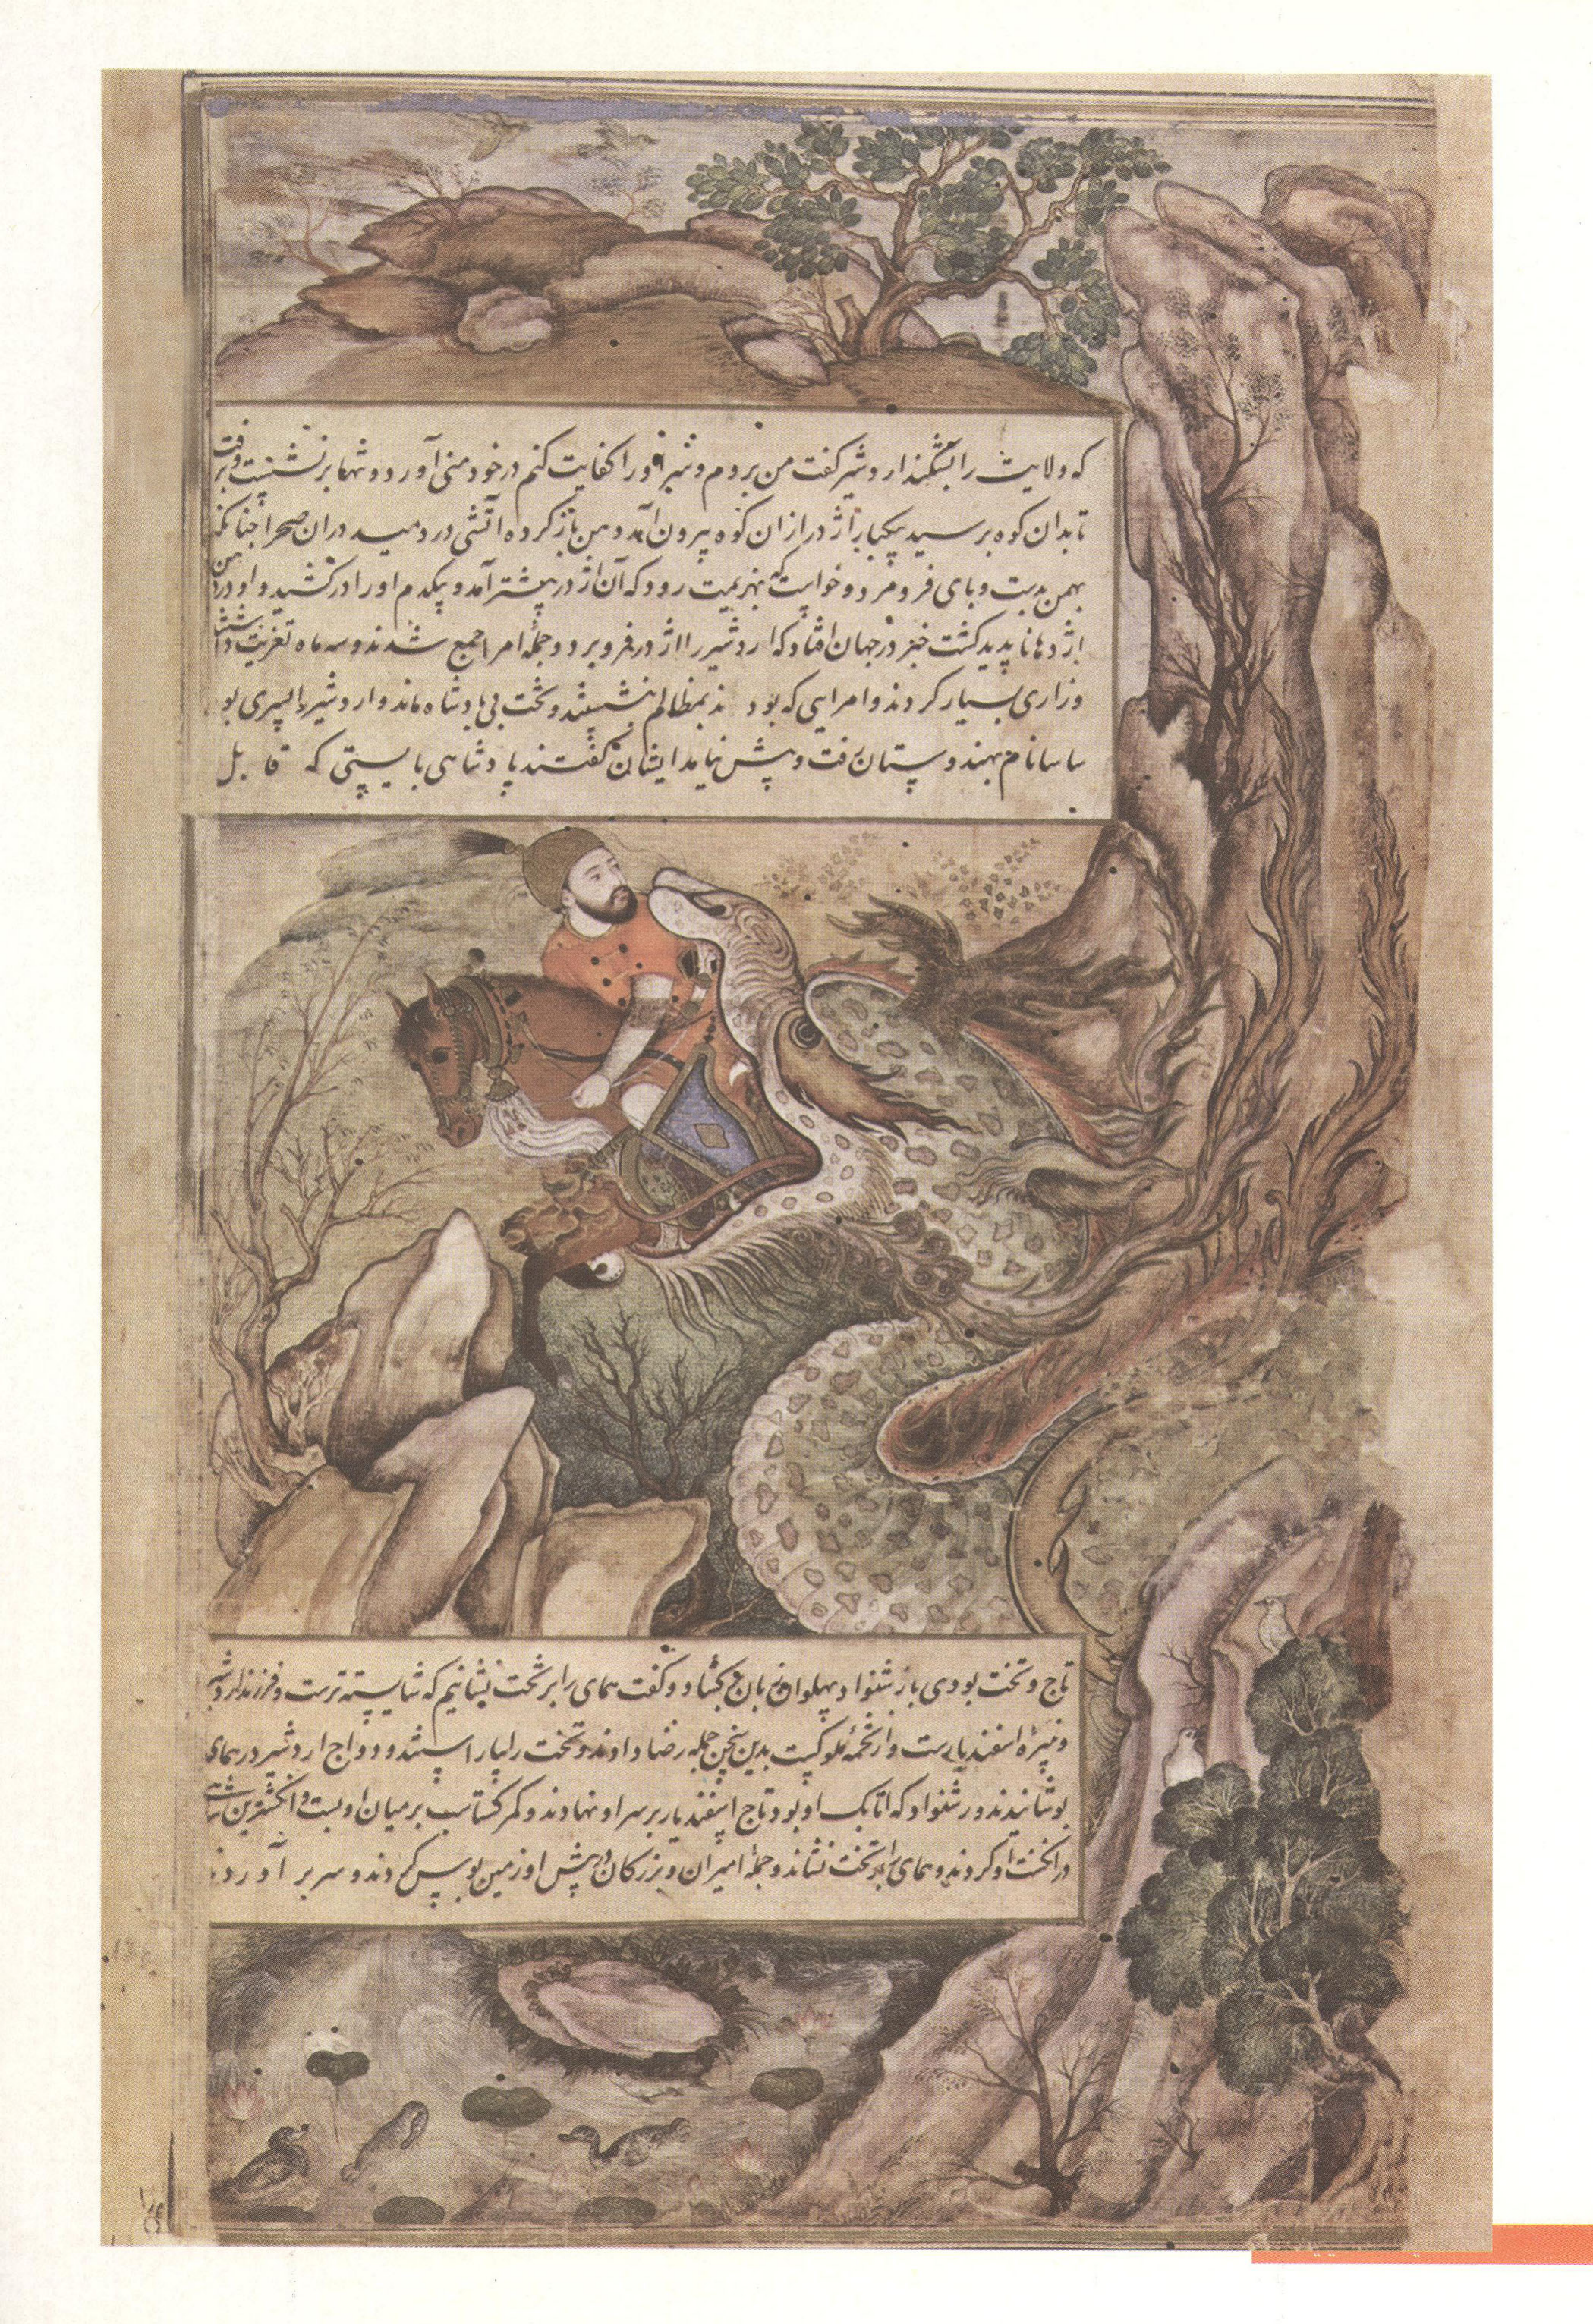 که ولایت را بشکند اردشیر گفت من بروم و شر او را کفایت کنم در خود منی آورد و تنها برنشست و برفت
تا بدان کوه برسید یکبار اژدر از ان کوه بیرون آمد دهن باز کرده آتشی در دمید در ان صحرا چنانکه
بهمن بدست و پای فرو مرد و خواست که بهزیمت رود که آن اژدر پیشتر آمد و یکدم او را در کشید و او در دهن
اژدها ناپدید گشت خبر در جهان افتاد که اردشیر را اژدر فرو برد و جمله امرا جمع شدند و سه ماه تعزیت داشتند
و زاری بسیار کردند و امرایی که بودند بمظالم بنشستند و تخت بی پادشاه ماند و اردشیر را پسری بود
ساسان نام بهندوستان رفت و پیش نیامد ایشان گفتند پادشاهی بایستی که قابل
تاج و تخت بودی باز شنواد پهلوان زبان بگشاد و گفت همای را بر تخت نشانیم که شایسته ترست و فرزند اردشیر
و نبیره اسفندیارست و از تخمه ملوکست بدین سخن جمله رضا دادند و تخت را بیاراستند و دواج اردشیر در همای
پوشانیدند و رشنواد که اتابک او بود تاج اسفندیار بر سر او نهادند و کمر گشتاسب بر میان او بست و انگشترین
در انگشت او کردند و همای را بر تخت نشاند و جمله امیران و بزرگان در پیش او زمین بوس کردند و سر بر آوردند